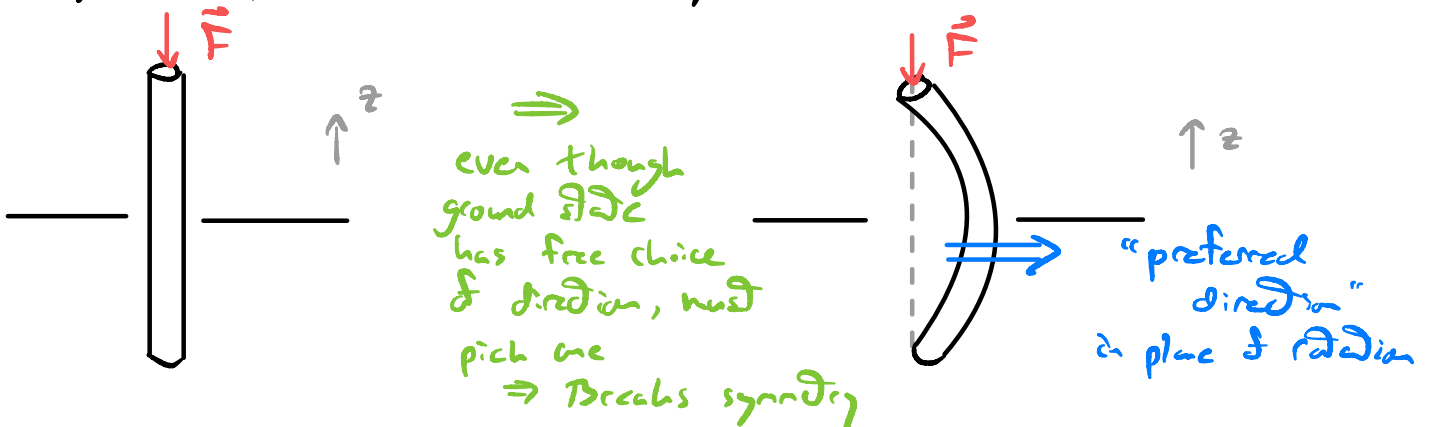 F
z
⇒
even though
ground state
has free choice
of direction, must
pick one
⇒ Breaks symmetry
F
z
"preferred
direction"
in plane of rotation